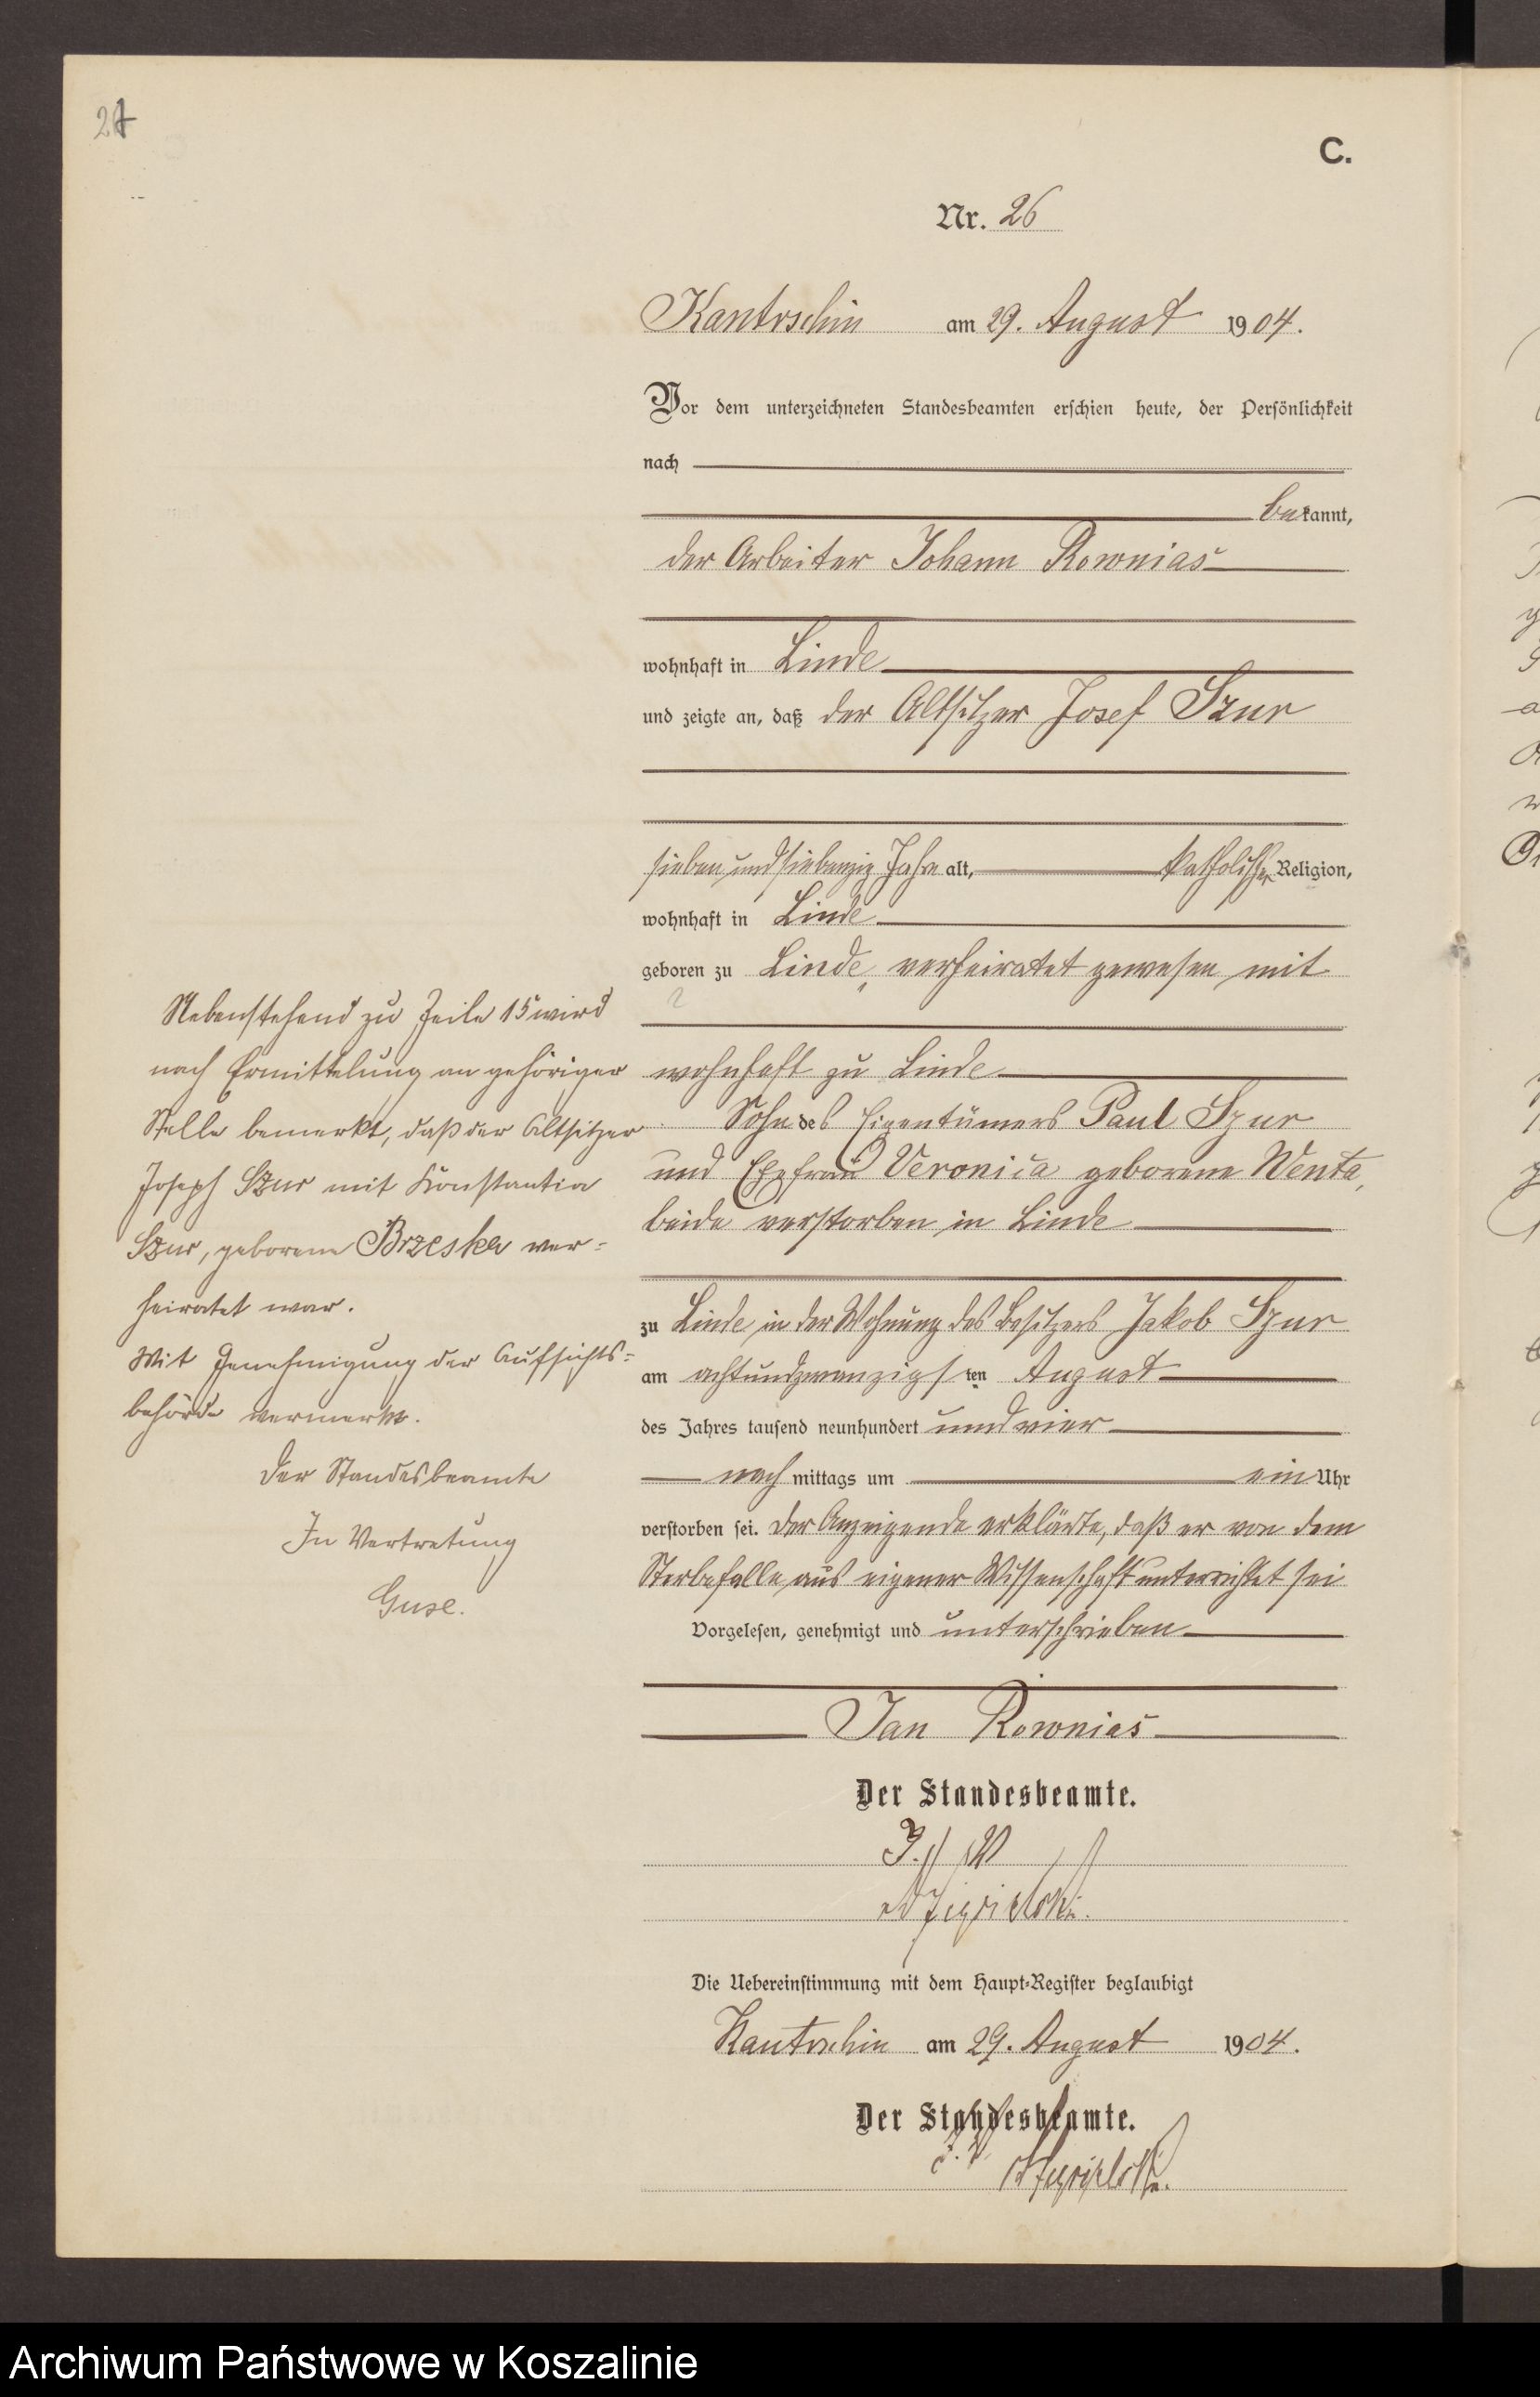 C.
Nr. 26
Kantrschin am 29. August 1904.
Vor dem unterzeichneten Standesbeamten erschien heute, der Persönlichkeit
nach
bekannt,
der Arbeiter Johann Rownias
wohnhaft in Linde
und zeigte an, daß der Altsitzer Josef Szur
sieben und siebenzig Jahre alt, katholischer Religion,
wohnhaft in Linde
geboren zu Linde, verheiratet gewesen mit
?
wohnhaft zu Linde
Sohn des Eigentümers Paul Szur
und Ehefrau Veronica geborene Wenta,
beide verstorben in Linde
zu Linde in der Wohnung des Besitzers Jakob Szur
am achtundzwanzigsten August
des Jahres tausend neunhundert und vier
nach mittags um ein Uhr
verstorben sei. Der Anzeigende erklärte, daß er von dem
Sterbefalle aus eigener Wissenschaft unterrichtet sei
Vorgelesen, genehmigt und unterschrieben
Jan Rownias
Der Standesbeamte.
J. V.
Die Uebereinstimmung mit dem Haupt-Register beglaubigt
Kantrschin am 29. August 1904.
Der Standesbeamte.
J. V.
Nebenstehend zu Zeile 15 wird
nach Ermittelung an gehöriger
Stelle bemerkt, daß der Altsitzer
Joseph Szur mit Konstantia
Szur, geborene Brzeska ver=
heiratet war.
Mit Genehmigung der Aufsichts=
behörde vermerkt.
Der Standesbeamte
In Vertretung
Guse.
Archiwum Państwowe w Koszalinie